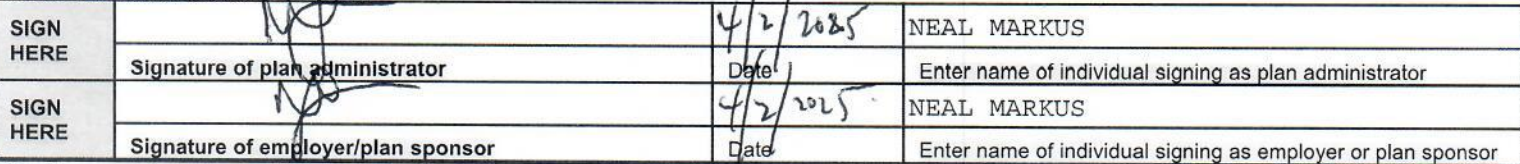 SIGN HERE 4/2/2025 NEAL MARKUS
Signature of plan administrator Date Enter name of individual signing as plan administrator
SIGN HERE 4/2/2025 NEAL MARKUS
Signature of employer/plan sponsor Date Enter name of individual signing as employer or plan sponsor